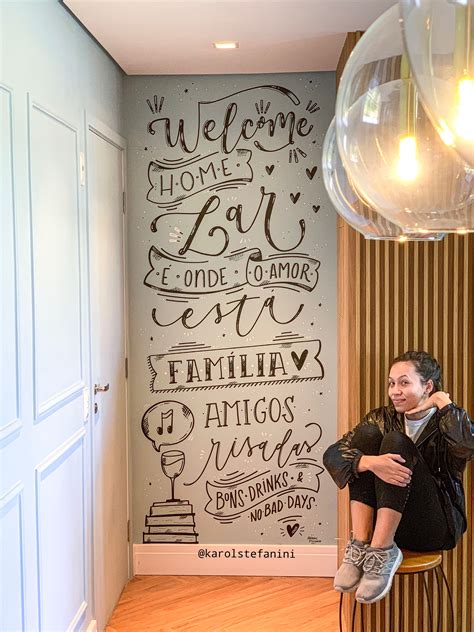 Welcome
HOME
Lar
É ONDE O AMOR
está
FAMÍLIA
AMIGOS
risadas
BONS DRINKS &
NO BAD DAYS
@karolstefanini